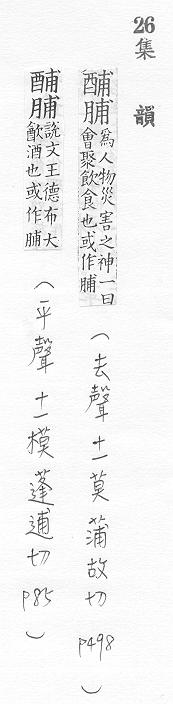 26
集韻
酺脯爲人物災害之神一曰會聚飲食也或作脯
(去聲十一莫 蒲故切 P498)
酺脯說文王德布大歠酒也或作脯
(平聲十一模 蓬逋切 P85)